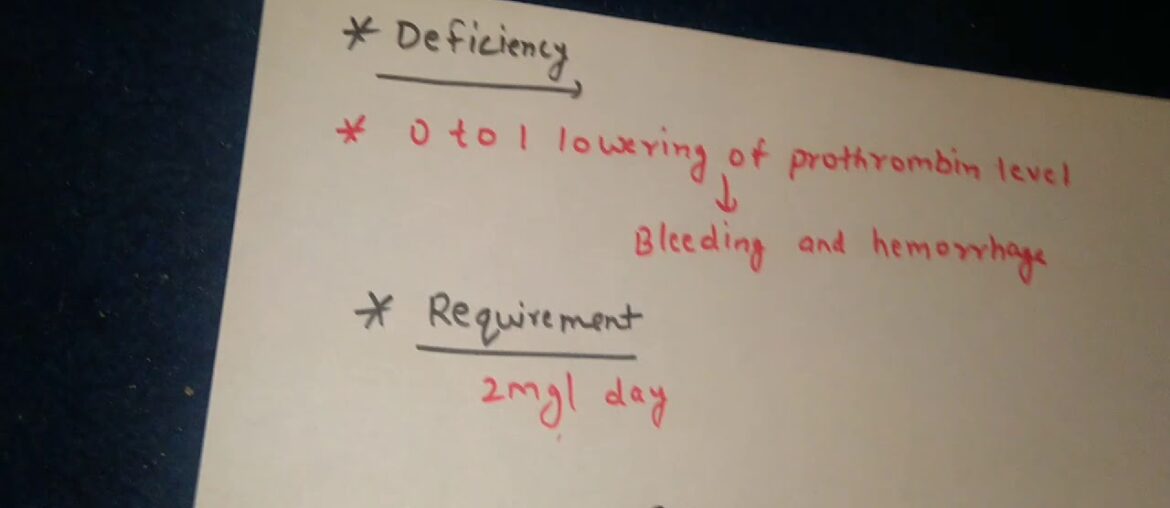 * Deficiency
* 0 to 1 lowering of prothrombin level
↓
Bleeding and hemorrhage
* Requirement
2mg/ day